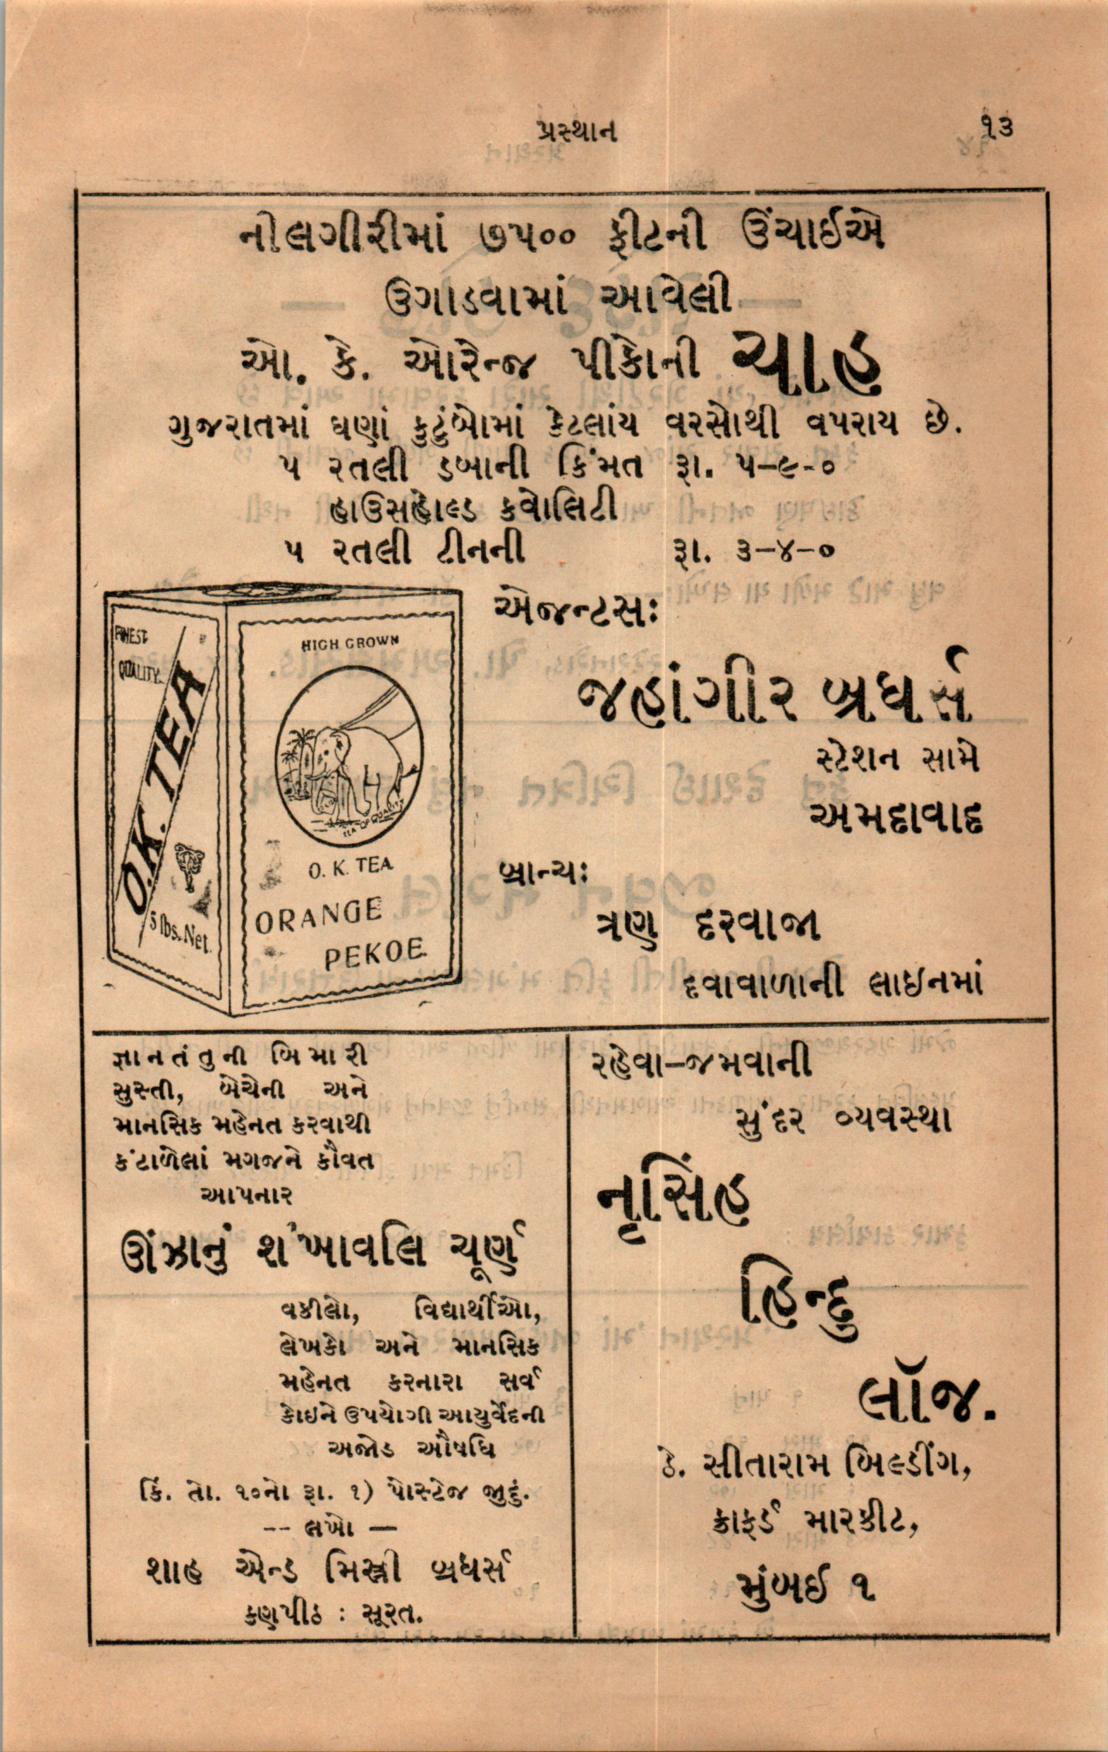 પ્રસ્થાન
૧૩
નીલગીરીમાં ૭૫૦૦ ફીટની ઉંચાઈએ
ઉગાડવામાં આવેલી
ઓ. કે. ઓરેન્જ પીકોની ચાહ
ગુજરાતમાં ઘણાં કુટુંબોમાં કેટલાંય વરસોથી વપરાય છે.
૫ રતલી ડબાની કિંમત રૂા. ૫-૯-૦
હાઉસહોલ્ડ કવોલિટી
૫ રતલી ટીનની રૂા. ૩-૪-૦
FINEST
QUALITY
O.K. TEA
5 lbs. Net.
HIGH GROWN
TEA OF QUALITY
O. K. TEA
ORANGE
PEKOE
એજન્ટસઃ
જહાંગીર બ્રધર્સ
સ્ટેશન સામે
અમદાવાદ
બ્રાન્ચઃ
ત્રણ દરવાજા
દવાવાળાની લાઇનમાં
જ્ઞાનતંતુની બિમારી
સુસ્તી, બેચેની અને
માનસિક મહેનત કરવાથી
કંટાળેલાં મગજને કૌવત
આપનાર
ઊંઝાનું શંખાવલિ ચૂર્ણ
વકીલો, વિદ્યાર્થીઓ,
લેખકો અને માનસિક
મહેનત કરનારા સર્વ
કોઇને ઉપયોગી આયુર્વેદની
અજોડ ઔષધિ
કિં. તો. ૧૦નો રૂા. ૧) પોસ્ટેજ જીુદું.
-- લખો —
શાહ એન્ડ મિસ્ત્રી બ્રધર્સ
કણપીઠ : સૂરત.
રહેવા-જમવાની
સુંદર વ્યવસ્થા
નૃસિંહ
હિન્દુ
લૉજ.
ઠે. સીતારામ બિલ્ડીંગ,
ક્રાફર્ડ મારકીટ,
મુંબઈ ૧